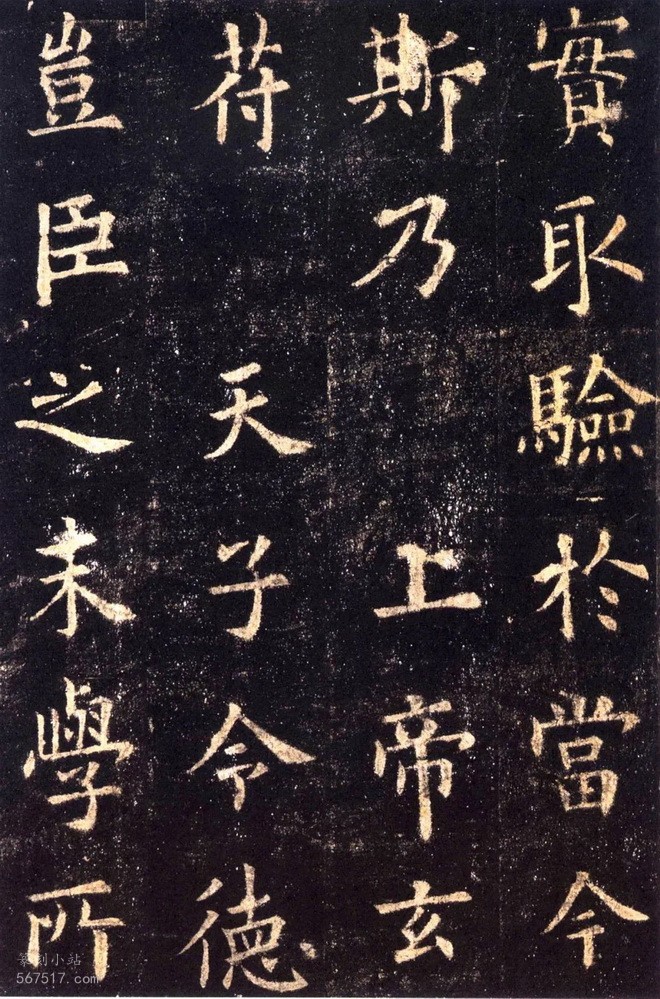 實取驗於當今
斯乃上帝玄
苻天子令德
豈臣之末學所
篆刻小站
567517.com